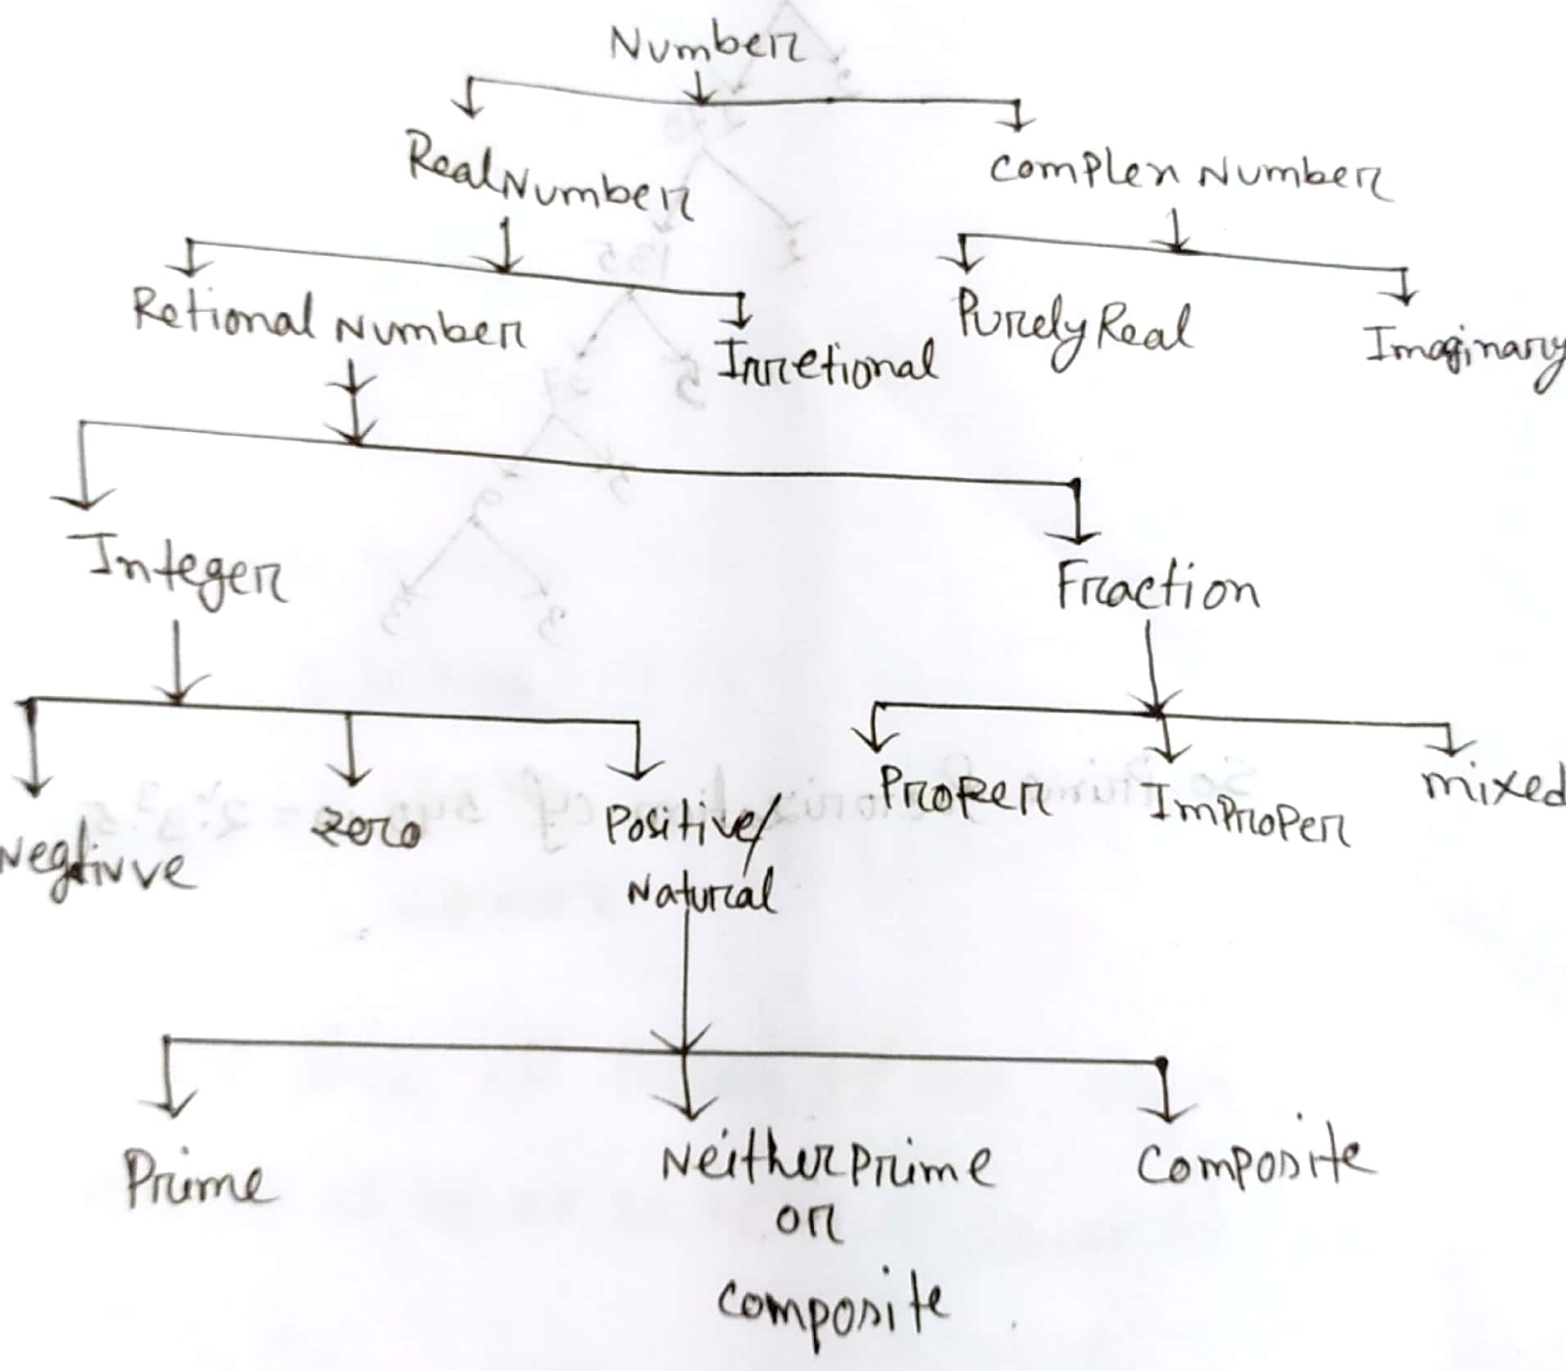 Number
Real Number
Complex Number
Retional Number
Irretional
Purely Real
Imaginary
Integer
Fraction
Negtivve
zero
Positive/
Natural
Proper
Improper
mixed
Prime
Neither prime
or
composite
Composite